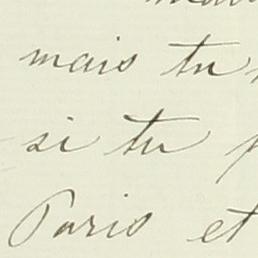 mais tu
si tu
Paris et